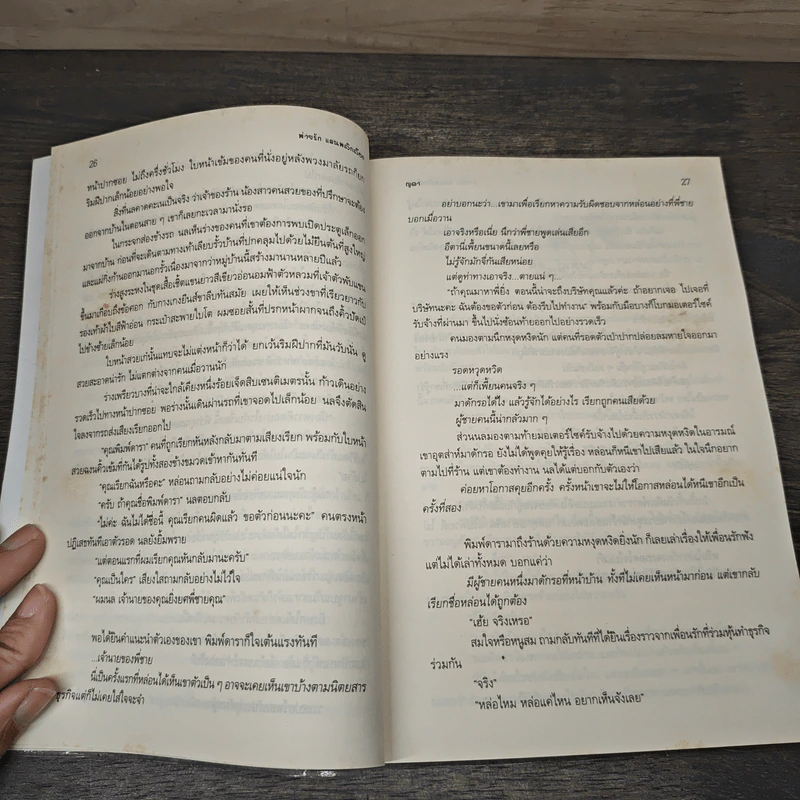 26
พ่ายรัก
หน้าปากซอย ไม่ถึงครึ่งชั่วโมง ใบหน้าเข้มของคนที่นั่งอยู่หลังพวงมาลัยรถก็ยก
ริมฝีปากเล็กน้อยอย่างพอใจ
สิงที่นลคาดคะเนเป็นจริง ว่าเจ้าของร้าน น้องสาวคนสวยของที่ปรึกษาจะต้อง
ออกจากบ้านในตอนสาย ๆ เขาก็เลยกะเวลามานั่งรอ
ในกระจกส่องข้างรถ นลเห็นร่างของคนที่เขาต้องการพบเปิดประตูเล็กออก
มาจากบ้าน ก่อนที่จะเดินตามทางเท้าเลียบรั้วบ้านที่ปกคลุมไปด้วยไม้ยืนต้นที่สูงใหญ่
และแผ่กิ่งก้านออกมานอกรั้วเนื่องมาจากว่าหมู่บ้านนี้สร้างมานานหลายปีแล้ว
ร่างสูงระหงในชุดเสื้อเชิ้ตแขนยาวสีเขียวอ่อนอมฟ้าตัวหลวมที่เจ้าตัวพับแขน
ขึ้นมาเกือบถึงข้อศอก กับกางเกงยีนส์ขาสิบทันสมัย เผยให้เห็นช่วงขาที่เรียวยาวกับ
รองเท้าผ้าใบสีฟ้าอ่อน กระเป๋าสะพายใบโต ผมซอยสั้นที่ปรกหน้าผากจนถึงคิ้วปัดเป๋
ไปข้างซ้ายเล็กน้อย
ใบหน้าสวยเก๋นั้นแทบจะไม่แต่งหน้าก็ว่าได้ ยกเว้นริมฝีปากที่มันวับนั่น ดู
สวยสะอาดน่ารัก ไม่แตกต่างจากคนเมื่อวานนัก
ร่างเพรียวบางที่น่าจะใกล้เคียงหนึ่งร้อยเจ็ดสิบเซนติเมตรนั้น ก้าวเดินอย่าง
รวดเร็วไปทางหน้าปากซอย พอร่างนั้นเดินผ่านรถที่เขาจอดไปเล็กน้อย นลจึงตัดสิน
ใจลงจากรถส่งเสียงเรียกออกไป
"คุณพิมพ์ดารา" คนที่ถูกเรียกหันหลังกลับมาตามเสียงเรียก พร้อมกับใบหน้า
สวยฉงนคิ้วเข้มที่กันได้รูปทั้งสองข้างขมวดเข้าหากันทันที
"คุณเรียกฉันหรือคะ" หล่อนถามกลับอย่างไม่ค่อยแน่ใจนัก
"ครับ ถ้าคุณชื่อพิมพ์ดารา" นลตอบกลับ
"ไม่ค่ะ ฉันไม่ได้ชื่อนี้ คุณเรียกคนผิดแล้ว ขอตัวก่อนนะคะ" คนตรงหน้า
ปฏิเสธทันทีเอาตัวรอด นลยังยิ้มพราย
"แต่ตอนแรกที่ผมเรียกคุณหันกลับมานะครับ"
"คุณเป็นใคร" เสียงใสถามกลับอย่างไม่ไว้ใจ
"ผมนล เจ้านายของคุณยิ่งยศพี่ชายคุณ"
พอได้ยินคำแนะนำตัวเองของเขา พิมพ์ดาราก็ใจเต้นแรงทันที
...เจ้านายของพี่ชาย
นี่เป็นครั้งแรกที่หล่อนได้เห็นเขาตัวเป็น ๆ อาจจะเคยเห็นเขาบ้างตามนิตยสาร
ธุรกิจแต่ก็ไม่เคยใส่ใจจะจำ
ญดา
27
อย่าบอกนะว่า...เขามาเพื่อเรียกหาความรับผิดชอบจากหล่อนอย่างที่พี่ชาย
บอกเมื่อวาน
เอาจริงหรือเนี่ย นึกว่าพี่ชายพูดเล่นเสียอีก
อีตานี่เพี้ยนขนาดนี้เลยหรือ
ไม่รู้จักมักจี่กันเสียหน่อย
แต่ดูท่าทางเอาจริง...ตายแน่ ๆ...
"ถ้าคุณมาหาพี่ยิ่ง ตอนนี้น่าจะถึงบริษัทคุณแล้วค่ะ ถ้าอยากเจอ ไปเจอที่
บริษัทนะคะ ฉันต้องขอตัวก่อน ต้องรีบไปทำงาน" พร้อมกับมือบางก็โบกมอเตอร์ไซค์
รับจ้างที่ผ่านมา ขึ้นไปนั่งซ้อนท้ายออกไปอย่างรวดเร็ว
คนมองตามนึกหงุดหงิดนัก แต่คนที่รอดตัวเป่าปากปล่อยลมหายใจออกมา
อย่างแรง
รอดหวุดหวิด
...แต่ก็เพี้ยนคนจริง ๆ
มาดักรอได้ไง แล้วรู้จักได้อย่างไร เรียกถูกคนเสียด้วย
ผู้ชายคนนี้น่ากลัวมาก ๆ
ส่วนนลมองตามท้ายมอเตอร์ไซค์รับจ้างไปด้วยความหงุดหงิดในอารมณ์
เขาอุตส่าห์มาดักรอ ยังไม่ได้พูดคุยให้รู้เรื่อง หล่อนก็หนีเขาไปเสียแล้ว ในใจนึกอยาก
ตามไปที่ร้าน แต่เขาต้องทำงาน นลได้แต่บอกกับตัวเองว่า
ค่อยหาโอกาสคุยอีกครั้ง ครั้งหน้าเขาจะไม่ให้โอกาสหล่อนได้หนีเขาอีกเป็น
ครั้งที่สอง
พิมพ์ดารามาถึงร้านด้วยความหงุดหงิดยิ่งนัก ก็เลยเล่าเรื่องให้เพื่อนรักฟัง
แต่ไม่ได้เล่าทั้งหมด บอกแค่ว่า
มีผู้ชายคนหนึ่งมาดักรอที่หน้าบ้าน ทั้งที่ไม่เคยเห็นหน้ามาก่อน แต่เขากลับ
เรียกชื่อหล่อนได้ถูกต้อง
"เฮ้ย จริงเหรอ"
สมใจหรือหนูสม ถามกลับทันทีที่ได้ยินเรื่องราวจากเพื่อนรักที่ร่วมหุ้นทำธุรกิจ
ร่วมกัน
"จริง"
"หล่อไหม หล่อแค่ไหน อยากเห็นจังเลย"